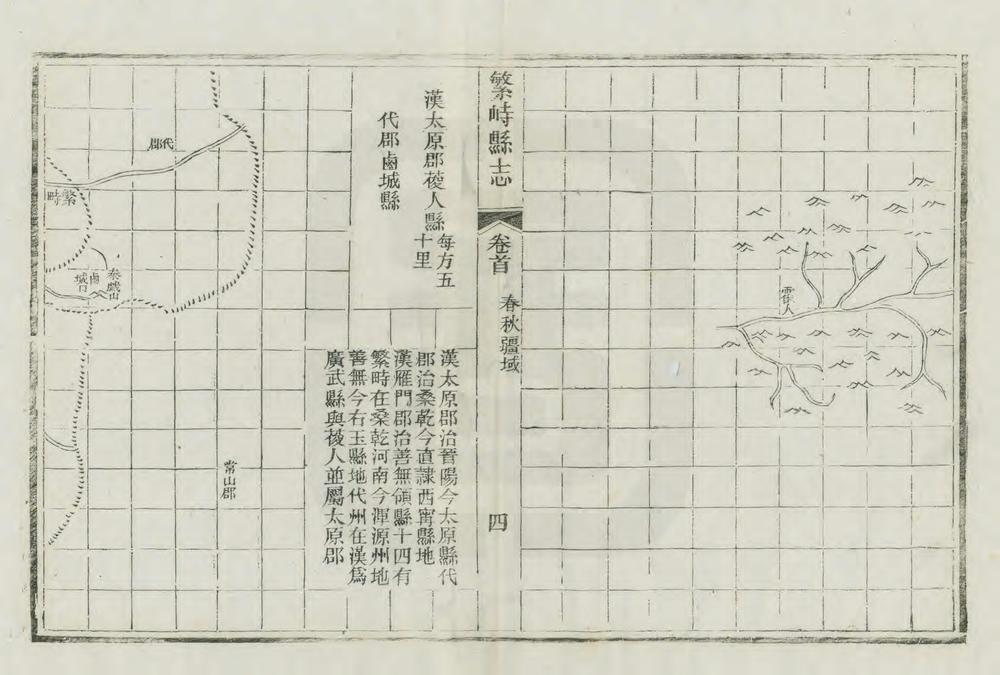 霍人
繁峙縣志
卷首
春秋疆域
四
漢太原郡葰人縣
每方五
十里
代郡鹵城縣
漢太原郡治晉陽今太原縣代
郡治桑乾今直隸西甯縣地
漢雁門郡治善無領縣十四有
繁畤在桑乾河南今渾源州地
善無今右玉縣地代州在漢爲
廣武縣與葰人並屬太原郡
常山郡
代郡
繁畤
泰戲山
鹵城